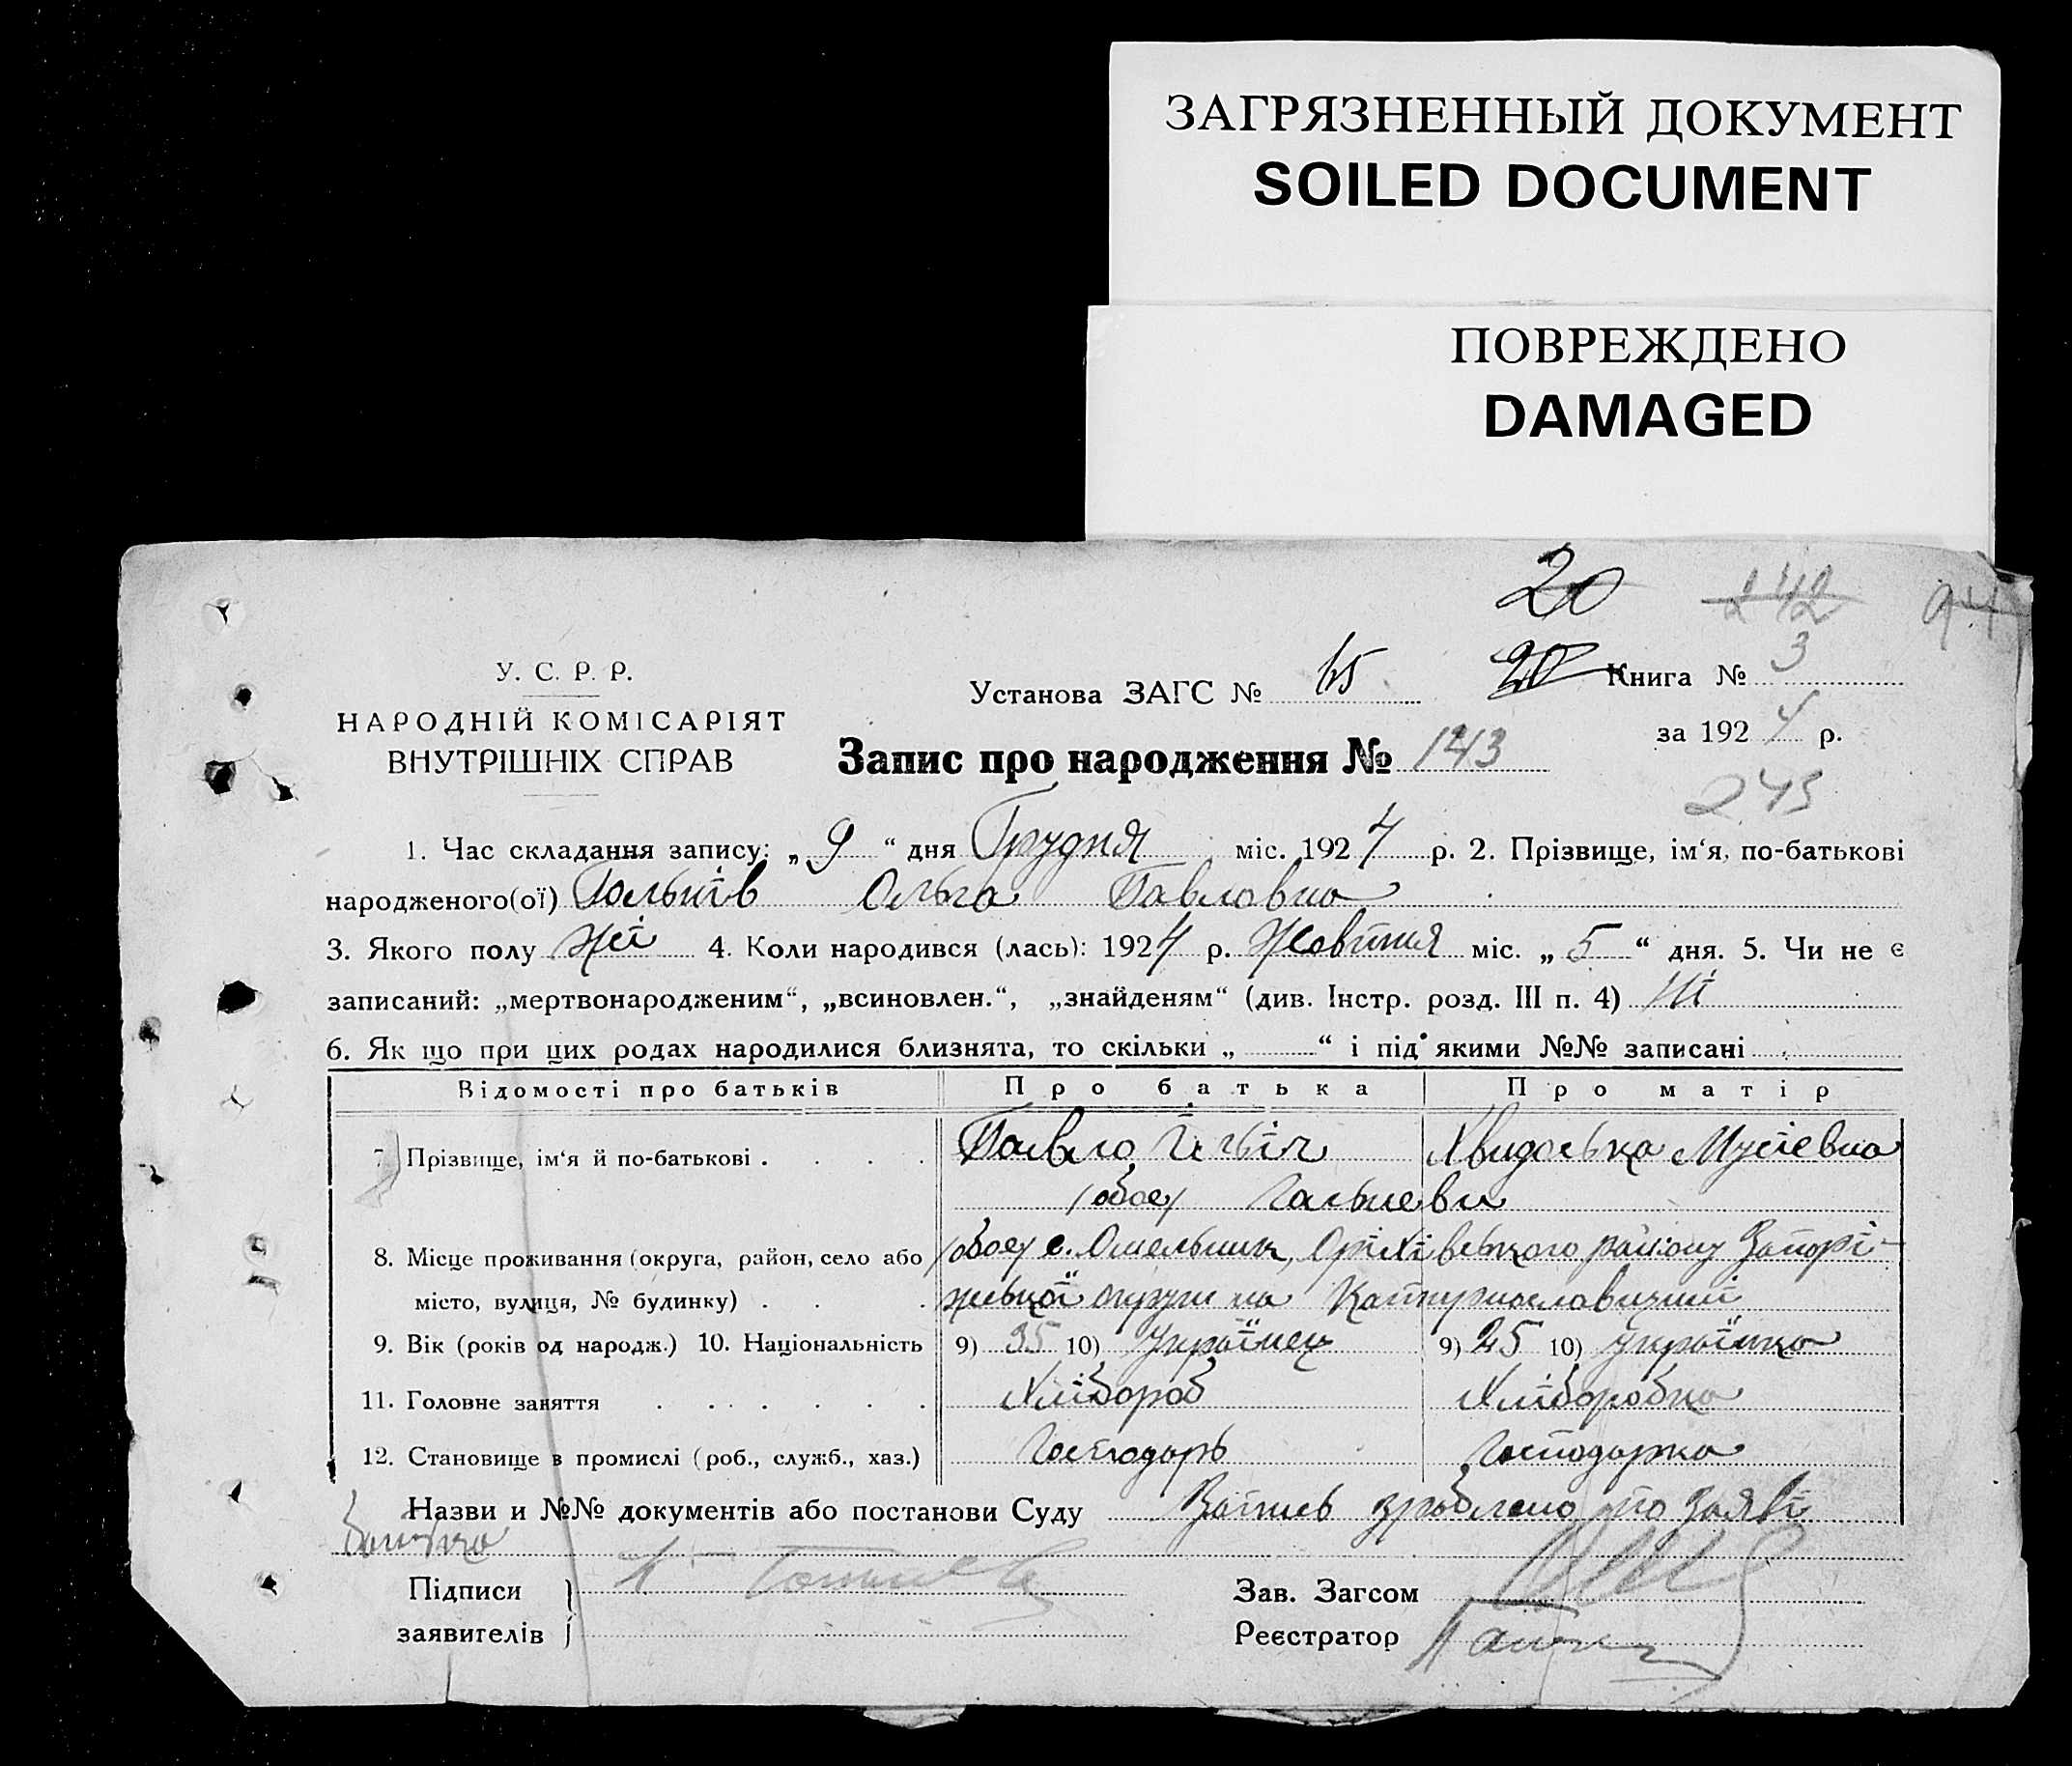 ЗАГРЯЗНЕННЫЙ ДОКУМЕНТ
SOILED DOCUMENT
ПОВРЕЖДЕНО
DAMAGED
20 242 94
У. С. Р. Р.
НАРОДНІЙ КОМІСАРІЯТ
ВНУТРІШНІХ СПРАВ
Установа ЗАГС № 65
20 Книга № 3
за 1924 р.
Запис про народження № 143
243
1. Час складання запису: „9“ дня Грудня міс. 1924 р. 2. Прізвище, ім‘я, по-батькові
народженого(ої) Ольга Павловна
3. Якого полу жі 4. Коли народився (лась): 1924 р. Жовтня міс. „5“ дня. 5. Чи не є
записаний: „мертвонародженим“, „всиновлен.“, „знайденям“ (див. Інстр. розд. III п. 4) Ні
6. Як що при цих родах народилися близнята, то скільки „ “ і під якими №№ записані
Відомості про батьків Про батька Про матір
7. Прізвище, ім‘я й по-батькові . . . . Павло Ільіч Хвидоська Мусіевна
(обое)
8. Місце проживання (округа, район, село або (обое) с. Омельник, Оріхівського району Запорі-
місто, вулиця, № будинку) . . . жської округи на Катеринославщині
9. Вік (років од народж.) 10. Національність 9) 35 10) Українец 9) 25 10) Українка
11. Головне заняття . . . . . . Хлібороб Хліборобка
12. Становище в промислі (роб., служб., хаз.) Господарь Господарка
Назви и №№ документів або постанови Суду Запись зроблено по заяві
батька
Підписи
заявителів
Зав. Загсом
Реєстратор